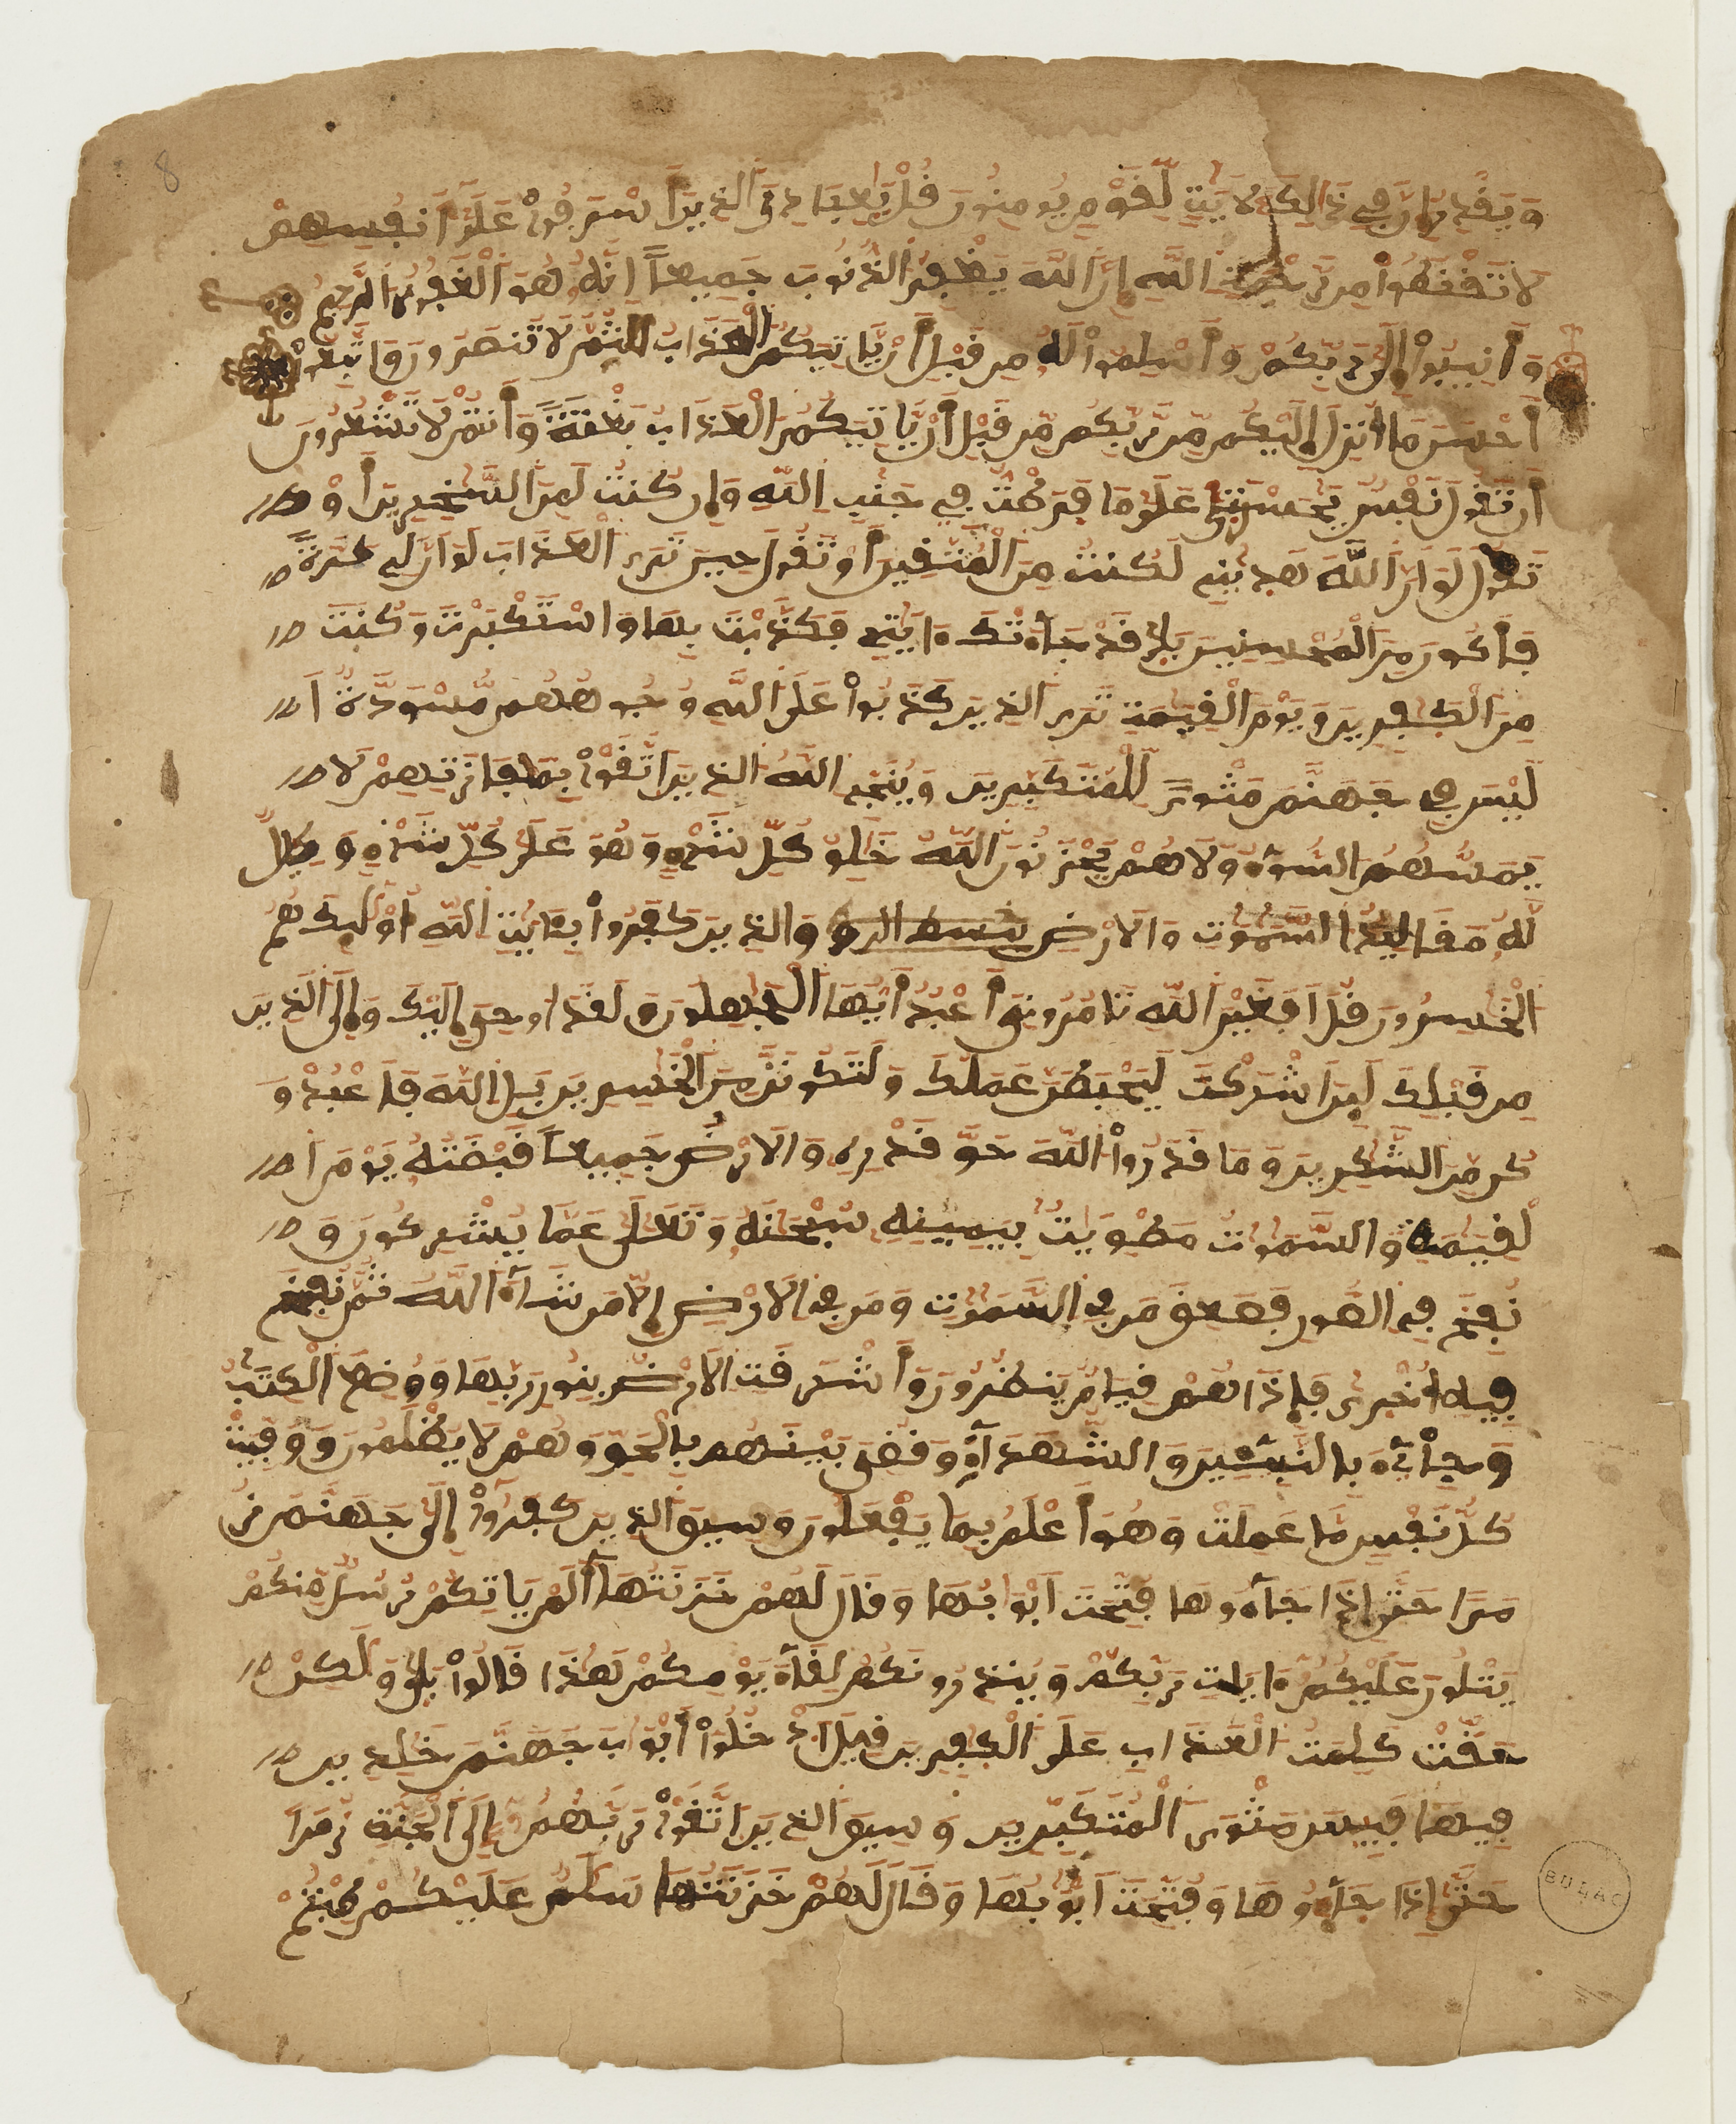 وَيَقْدِرُ إِنَّ فِي ذَٰلِكَ لَأَيَٰتٍ لِّقَوْمٍ يُومِنُونَ قُلْ يَٰعِبَادِيَ الذِينَ أَسْرَفُواْ عَلَىٰ أَنفُسِهِمْ
لَا تَقْنَطُواْ مِن رَّحْمَةِ اللَّهِ إِنَّ اللَّهَ يَغْفِرُ الذُّنُوبَ جَمِيعاً إِنَّهُ هُوَ الْغَفُورُ الرَّحِيمُ
وَأَنِيبُواْ إِلَىٰ رَبِّكُمْ وَأَسْلِمُواْ لَهُ مِن قَبْلِ أَنْ يَّاتِيَكُمُ الْعَذَابُ ثُمَّ لَا تُنصَرُونَ وَاتَّبِعُواْ
أَحْسَنَ مَا أُنزِلَ إِلَيْكُم مِّن رَّبِّكُم مِّن قَبْلِ أَنْ يَّاتِيَكُمُ الْعَذَابُ بَغْتَةً وَأَنتُمْ لَا تَشْعُرُونَ
أَن تَقُولَ نَفْسٌ يَٰحَسْرَتَىٰ عَلَىٰ مَا فَرَّطتُ فِي جَنبِ اللَّهِ وَإِن كُنتُ لَمِنَ السَّٰخِرِينَ أَوْ
تَقُولَ لَوْ أَنَّ اللَّهَ هَدَىٰنِي لَكُنتُ مِنَ الْمُتَّقِينَ أَوْ تَقُولَ حِينَ تَرَى الْعَذَابَ لَوْ أَنَّ لِي كَرَّةً
فَأَكُونَ مِنَ الْمُحْسِنِينَ بَلَىٰ قَدْ جَآءَتْكَ ءَايَٰتِي فَكَذَّبْتَ بِهَا وَاسْتَكْبَرْتَ وَكُنتَ
مِنَ الْكَٰفِرِينَ وَيَوْمَ الْقِيَٰمَةِ تَرَى الذِينَ كَذَبُواْ عَلَى اللَّهِ وُجُوهُهُم مُّسْوَدَّةٌ أَ
لَيْسَ فِي جَهَنَّمَ مَثْوىً لِّلْمُتَكَبِّرِينَ وَيُنَجِّي اللَّهُ الذِينَ اتَّقَوْاْ بِمَفَازَتِهِمْ لَا
يَمَسُّهُمُ السُّوٓءُ وَلَا هُمْ يَحْزَنُونَ اللَّهُ خَٰلِقُ كُلِّ شَيْءٍ وَهُوَ عَلَىٰ كُلِّ شَيْءٍ وَكِيلٌ
لَّهُ مَقَالِيدُ السَّمَٰوَٰتِ وَالَارْضِ وَالذِينَ كَفَرُواْ بِـَٔايَٰتِ اللَّهِ أُوْلَٰٓئِكَ هُمُ
الْخَٰسِرُونَ قُلْ أَفَغَيْرَ اللَّهِ تَامُرُونِيَ أَعْبُدُ أَيُّهَا الْجَٰهِلُونَ وَلَقَدْ أُوحِيَ إِلَيْكَ وَإِلَى الذِينَ
مِن قَبْلِكَ لَئِنَ أَشْرَكْتَ لَيَحْبَطَنَّ عَمَلُكَ وَلَتَكُونَنَّ مِنَ الْخَٰسِرِينَ بَلِ اللَّهَ فَاعْبُدْ وَ
كُن مِّنَ الشَّٰكِرِينَ وَمَا قَدَرُواْ اللَّهَ حَقَّ قَدْرِهِ وَالَارْضُ جَمِيعاً قَبْضَتُهُ يَوْمَ ا
لْقِيَٰمَةِ وَالسَّمَٰوَٰتُ مَطْوِيَّٰتٌ بِيَمِينِهِ سُبْحَٰنَهُ وَتَعَٰلَىٰ عَمَّا يُشْرِكُونَ وَ
نُفِخَ فِي الصُّورِ فَصَعِقَ مَن فِي السَّمَٰوَٰتِ وَمَن فِي الَارْضِ إِلَّا مَن شَآءَ اللَّهُ ثُمَّ نُفِخَ
فِيهِ أُخْرَىٰ فَإِذَا هُمْ قِيَامٌ يَنظُرُونَ وَأَشْرَقَتِ الَارْضُ بِنُورِ رَبِّهَا وَوُضِعَ الْكِتَٰبُ
وَجِاْيٓءَ بِالنَّبِيٓـِٕينَ وَالشُّهَدَآءِ وَقُضِيَ بَيْنَهُم بِالْحَقِّ وَهُمْ لَا يُظْلَمُونَ وَوُفِّيَتْ
كُلُّ نَفْسٍ مَّا عَمِلَتْ وَهُوَ أَعْلَمُ بِمَا يَفْعَلُونَ وَسِيقَ الذِينَ كَفَرُواْ إِلَىٰ جَهَنَّمَ زُ
مَراً حَتَّىٰ إِذَا جَآءُوهَا فُتِّحَتَ أَبْوَٰبُهَا وَقَالَ لَهُمْ خَزَنَتُهَا أَلَمْ يَاتِكُمْ رُسُلٌ مِّنكُمْ
يَتْلُونَ عَلَيْكُمُ ءَايَٰتِ رَبِّكُمْ وَيُنذِرُونَكُمْ لِقَآءَ يَوْمِكُمْ هَٰذَا قَالُواْ بَلَىٰ وَلَٰكِنْ
حَقَّتْ كَلِمَةُ الْعَذَابِ عَلَى الْكَٰفِرِينَ قِيلَ ادْخُلُواْ أَبْوَٰبَ جَهَنَّمَ خَٰلِدِينَ
فِيهَا فَبِيسَ مَثْوَى الْمُتَكَبِّرِينَ وَسِيقَ الذِينَ اتَّقَوْاْ رَبَّهُمُ إِلَى الْجَنَّةِ زُمَراً
حَتَّىٰ إِذَا جَآءُوهَا وَفُتِّحَتَ أَبْوَٰبُهَا وَقَالَ لَهُمْ خَزَنَتُهَا سَلَٰمٌ عَلَيْكُمْ طِبْتُمْ
8
BULAC